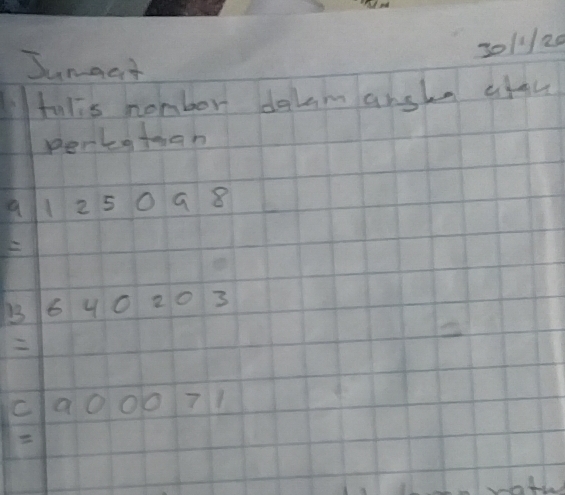 Jumaat 30/1/20
1. tulis nombor dalam angka atau
perkataan
a 1 2 5 0 9 8
=
B 6 4 0 2 0 3
=
C 9 0 0 0 7 1
=